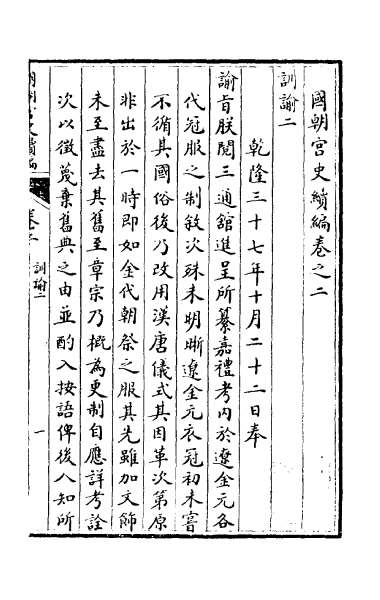 國朝宮史續編卷之二
訓諭二
乾隆三十七年十月二十二日奉
諭旨朕閱三通館進呈所纂嘉禮考内於遼金元各
代冠服之制敘次殊未明晰遼金元衣冠初未嘗
不循其國俗後乃改用漢唐儀式其因革次第原
非出於一時即如金代朝祭之服其先雖加文飾
未至盡去其舊至章宗乃概為更制自應詳考詮
次以徵蔑棄舊典之由並酌入按語俾後人知所
訓諭二
一